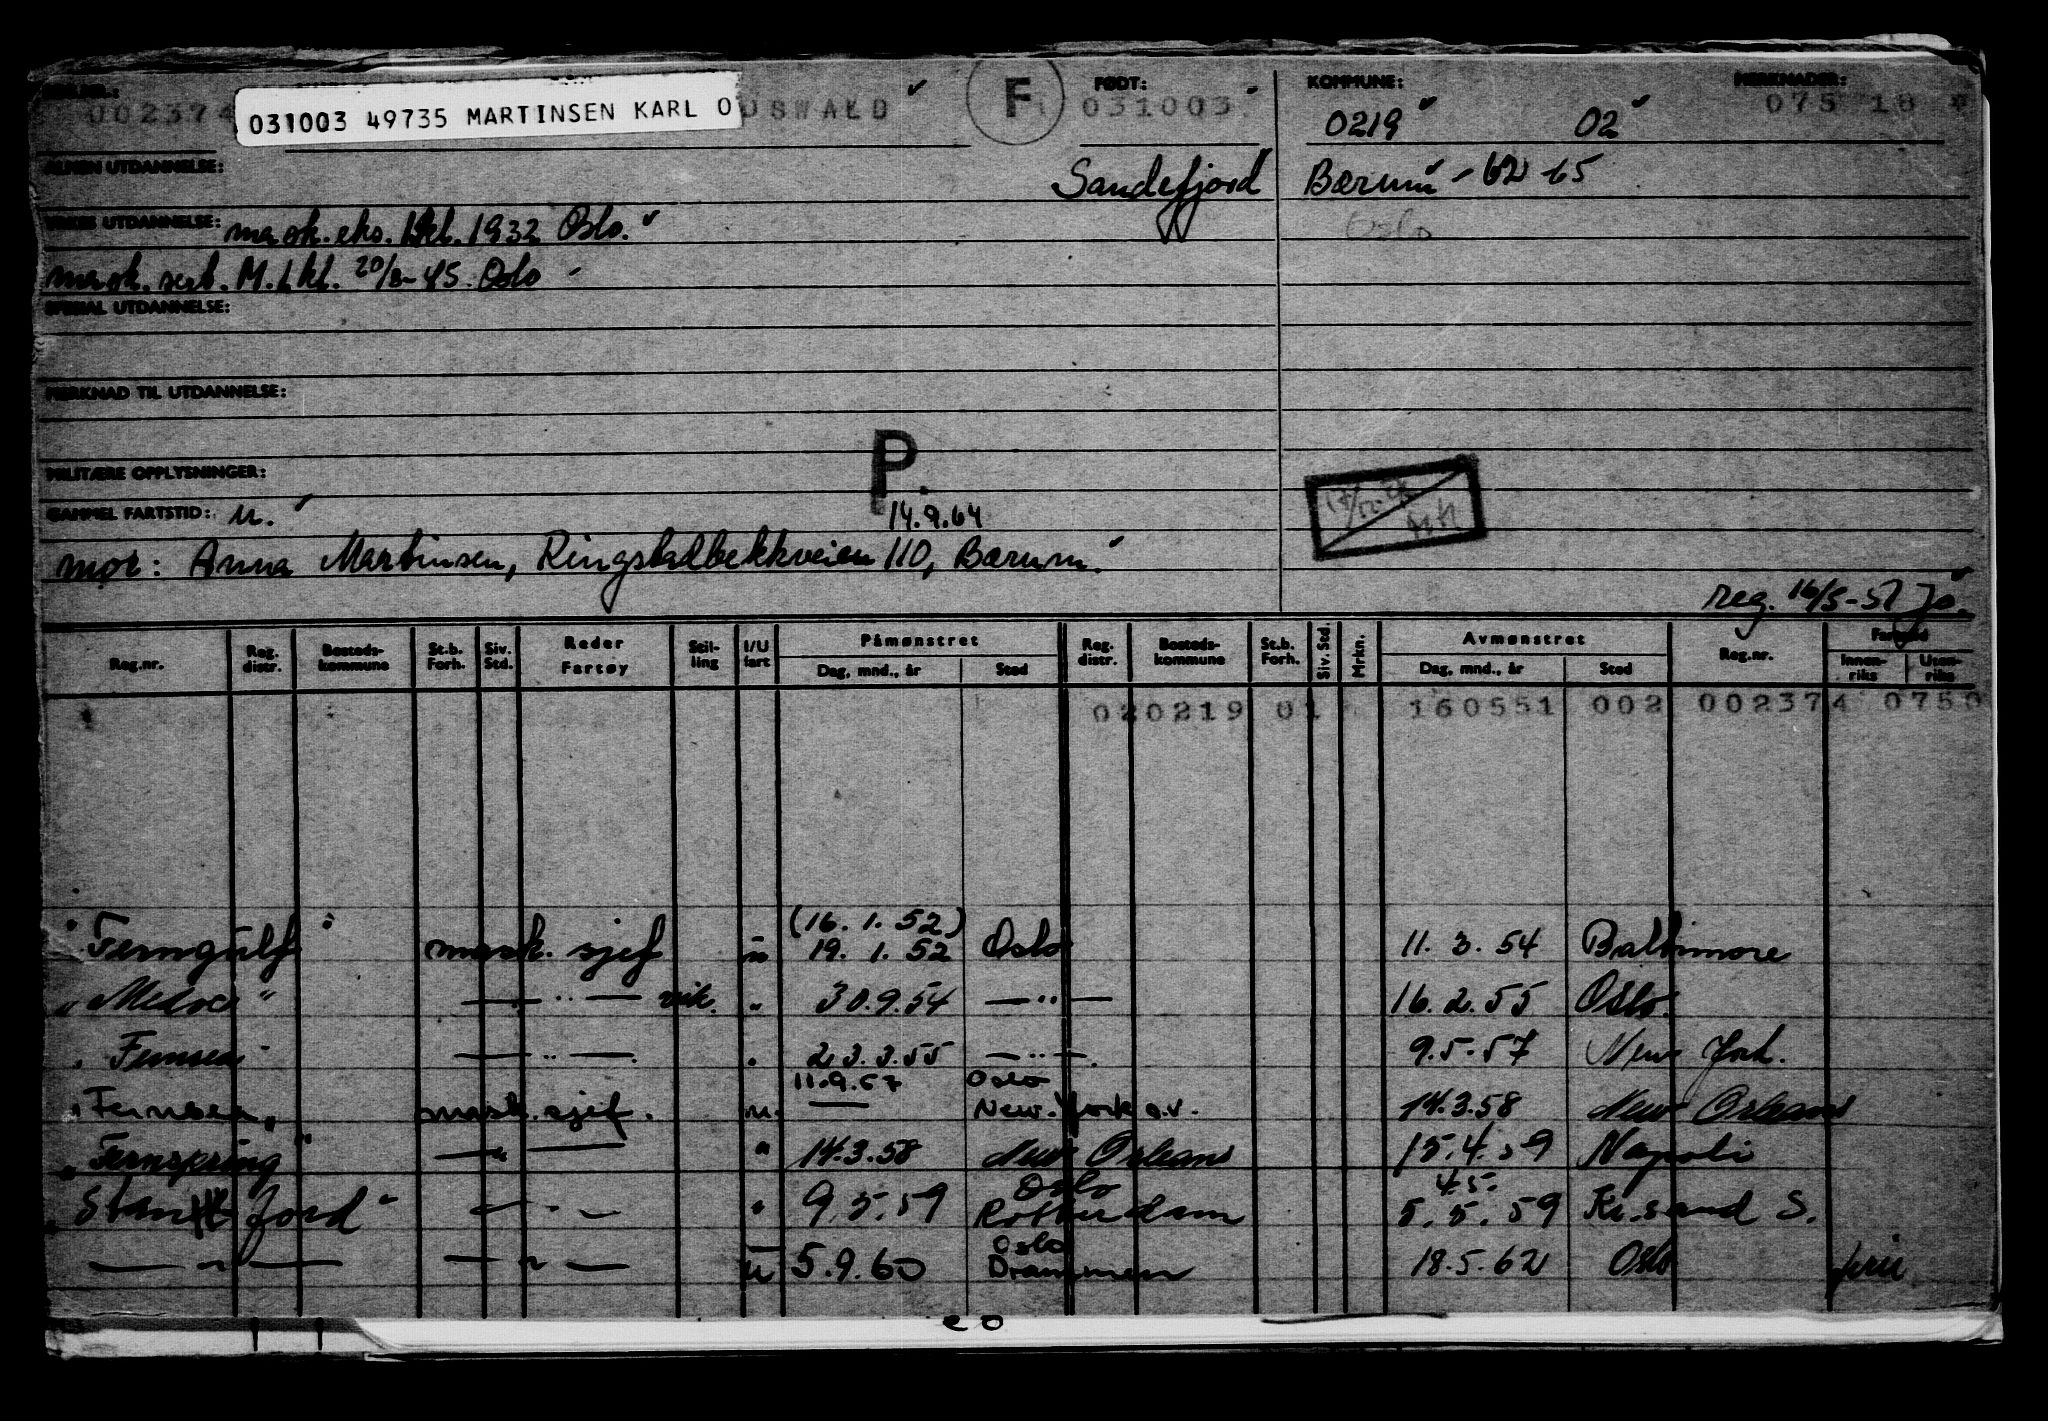 002374 031003 49735 MARTINSEN KARL O USWALD F FØDT: 031003 KOMMUNE: 0219 02 MERKNADER: 075 18
ALMEN UTDANNELSE: Sandefjord Bærum - 62 65
UTDANNELSE: mask. eks. 1932 Oslo. Oslo
mask. sert. M. 1 kl. 20/8-45 Oslo -
SPESIAL UTDANNELSE:
MERKNAD TIL UTDANNELSE:
MILITÆRE OPPLYSNINGER: P.
GAMMEL FARTSTID: u. 14.9.64
mor: Anna Martinsen, Ringstadbekkveien 110, Bærum.
reg. 16/5-51 Jo.
Reg.nr. Reg. distr. Bosteds-kommune St.b. Forh. Siv. Std. Reder Fartøy Stil-ling I/U fart Påmønstret Dag, mnd., år Sted Reg. distr. Bosteds-kommune St.b. Forh. Siv. Std. Mrkn. Avmønstret Dag, mnd., år Sted Reg.nr. Fartstid Innen-riks Uten-riks
020219 01 160551 002 002374 0750
(16. 1. 52)
"Ferngulf" mask. sjef u 19. 1. 52 Oslo 11. 3. 54 Baltimore
— " — vik. " 30.9.54 — " — 16. 2. 55 Oslo.
— " — . 23.3.55 — " — . 9.5.57 New York.
11.9.57 Oslo
"Fernsea" mask. sjef. u. — New. York o.v. 14.3.58 New Orleans
"Fernspring" — " — " 14.3.58 New Orleans 15.4.59 Napoli
Oslo 4.5.
— " — " 9.5.59 Rotterdam 5.5.59 Kr.sand S.
Oslo
— " — — " — u 5.9.60 Drammen 18.5.62 Oslo